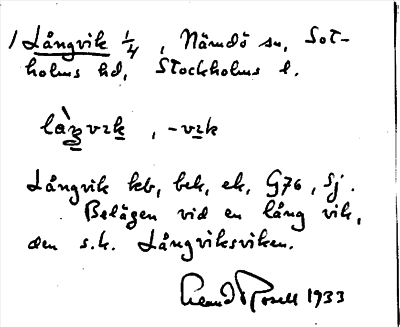 1 Långvik 1/4, Nämdö sn, Sot-
holms hd, Stockholms l.
làŋvɪk, -vɪk
Långvik kb, bek, ek, G76, Sj.
Belägen vid en lång vik,
den s.k. Långviksviken.
Rosell 1933